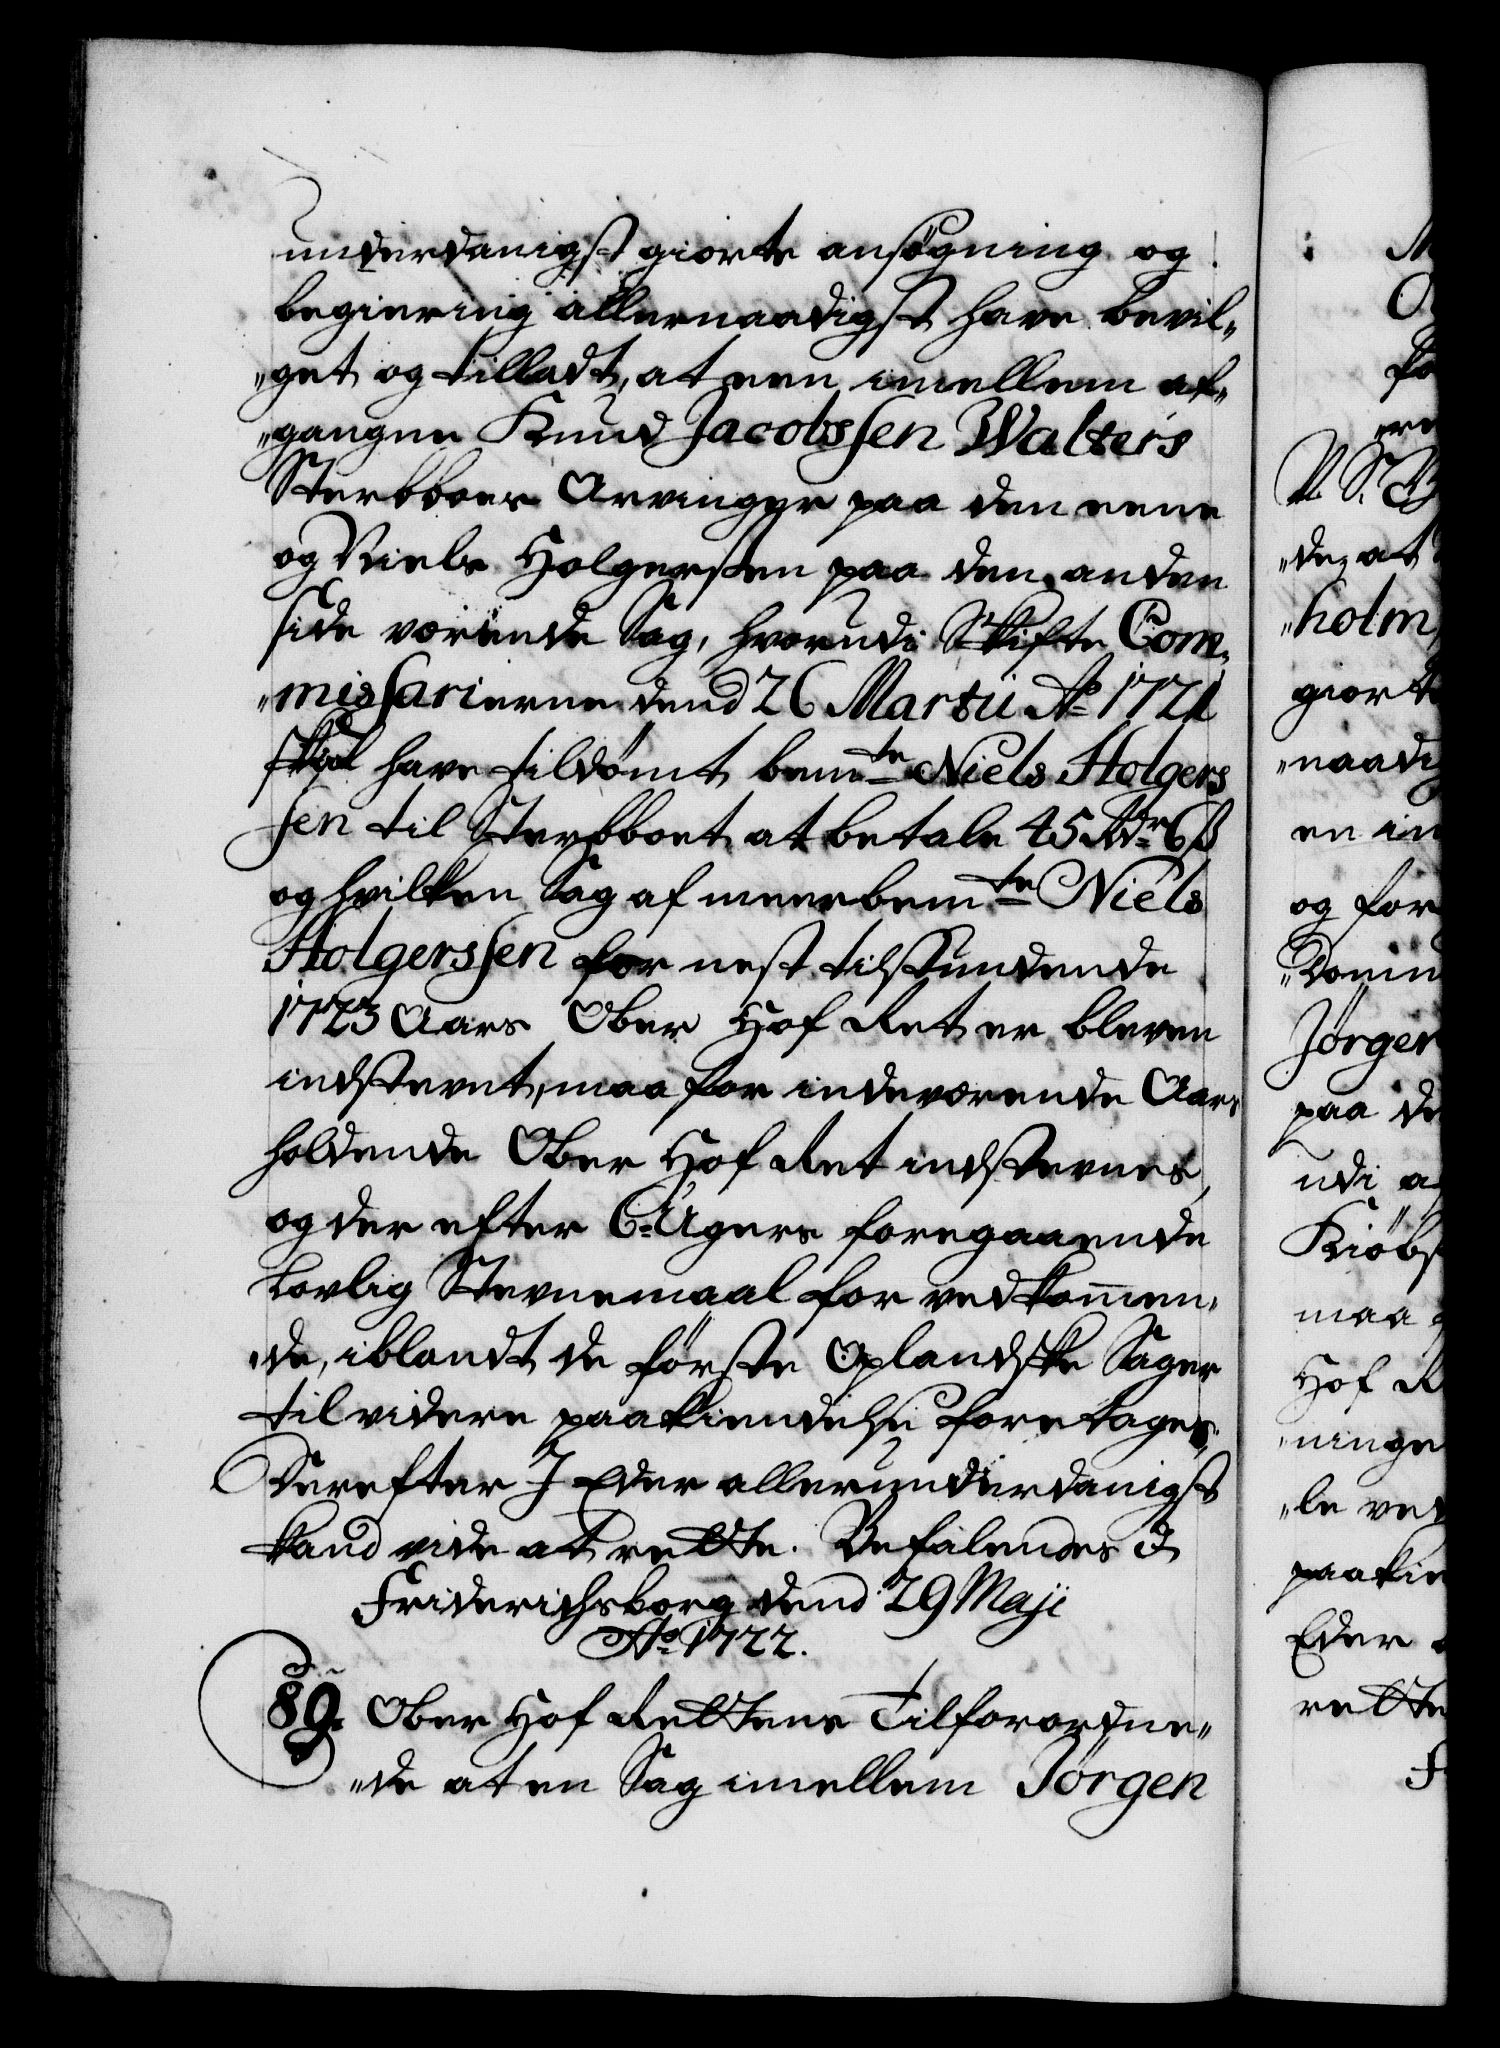 underdanigst giorte ansøgning og
begiering allernaadigst have bevil„
„get og tilladt, at een imellem af„
„gangne Knud Jacobssen Walters
Sterbboes Arvinger paa den eene
og Niels Holgersen paa den anden
side værende Sag, hvorudi Skifte Com„
„missarierne dend 26 Martii Ao 1721
skal have tildømt bemte Niels Holgers
sen til Sterbboet at betale 45 Rdr 6 ß
og hvilken Sag af meerbemte Niels
Holgerssen for nest tilstundende
1723 Aars Ober Hof Ret er bleven
indstevnt, maa for indeværende Aars
holdende Ober Hof Ret indstevnes,
og der efter 6 Ugers foregaaende
Lovlig Stevnemaal for vedkommen„
„de, iblandt de første Oplandske Sager
til videre paakiendelse foretages.
Derefter I Eder allerunderdanigst
kand vide at rette. Befalendes &
Friderichsborg dend 29 Maji
Ao 1722.
89. Ober Hof Rettens Tilforordne„
„de at en Sag imellem Jørgen
„de, at
„holm,
giort
„naadig
en im
og for
Jørgen
paa de
udi
Kiøbs
maa
Hof R
„ninge
„le ved
paakie
Eder
rette